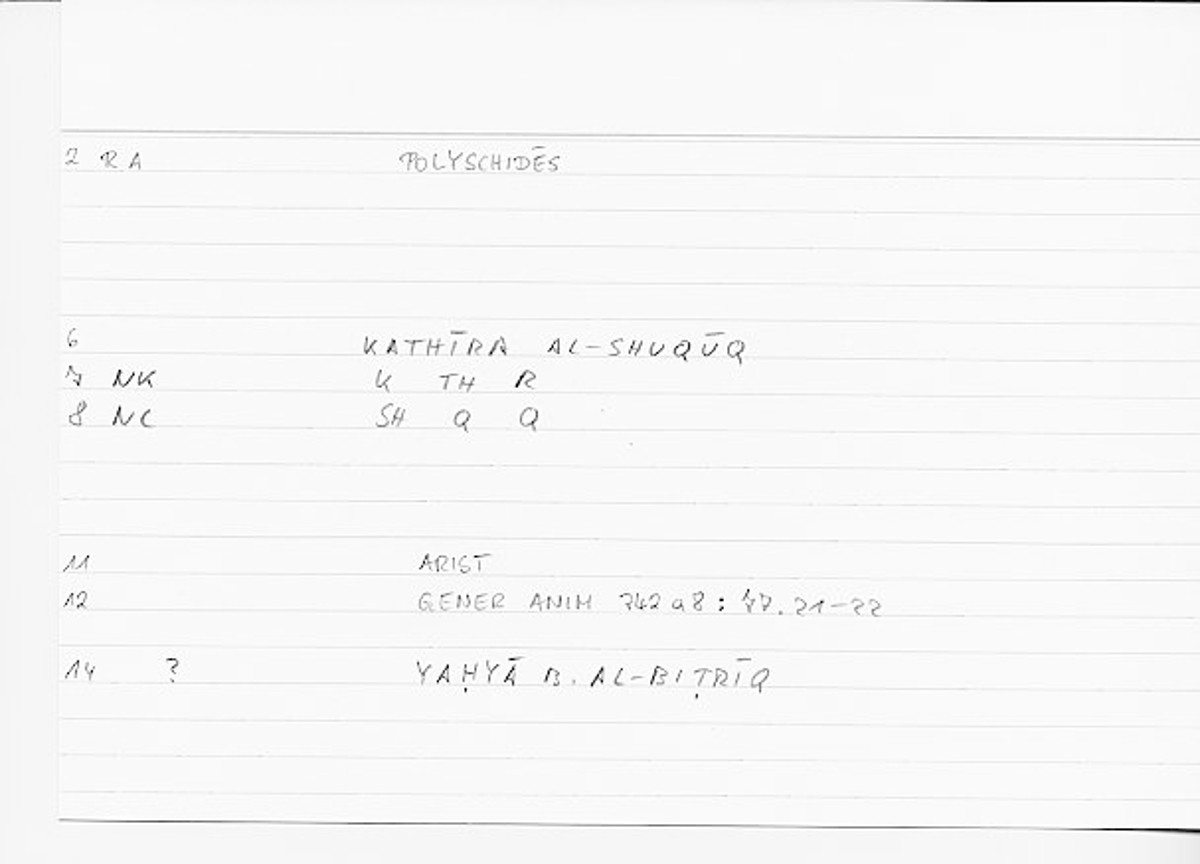 2 RA POLYSCHIDĒS
6 KATHĪRA AL-SHUQŪQ
7 NK K TH R
8 NC SH Q Q
11 ARIST
12 GENER ANIM 742 a 8 : 77. 21-22
14 ? YAḤYĀ B. AL-BIṬRĪQ